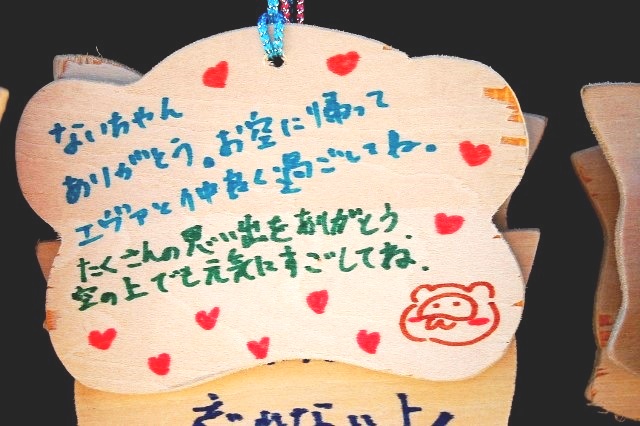 ないちゃん
ありがとう。お空に帰って
エヴァと仲良く過ごしてね。
たくさんの思い出をありがとう。
空の上でも元気にすごしてね。